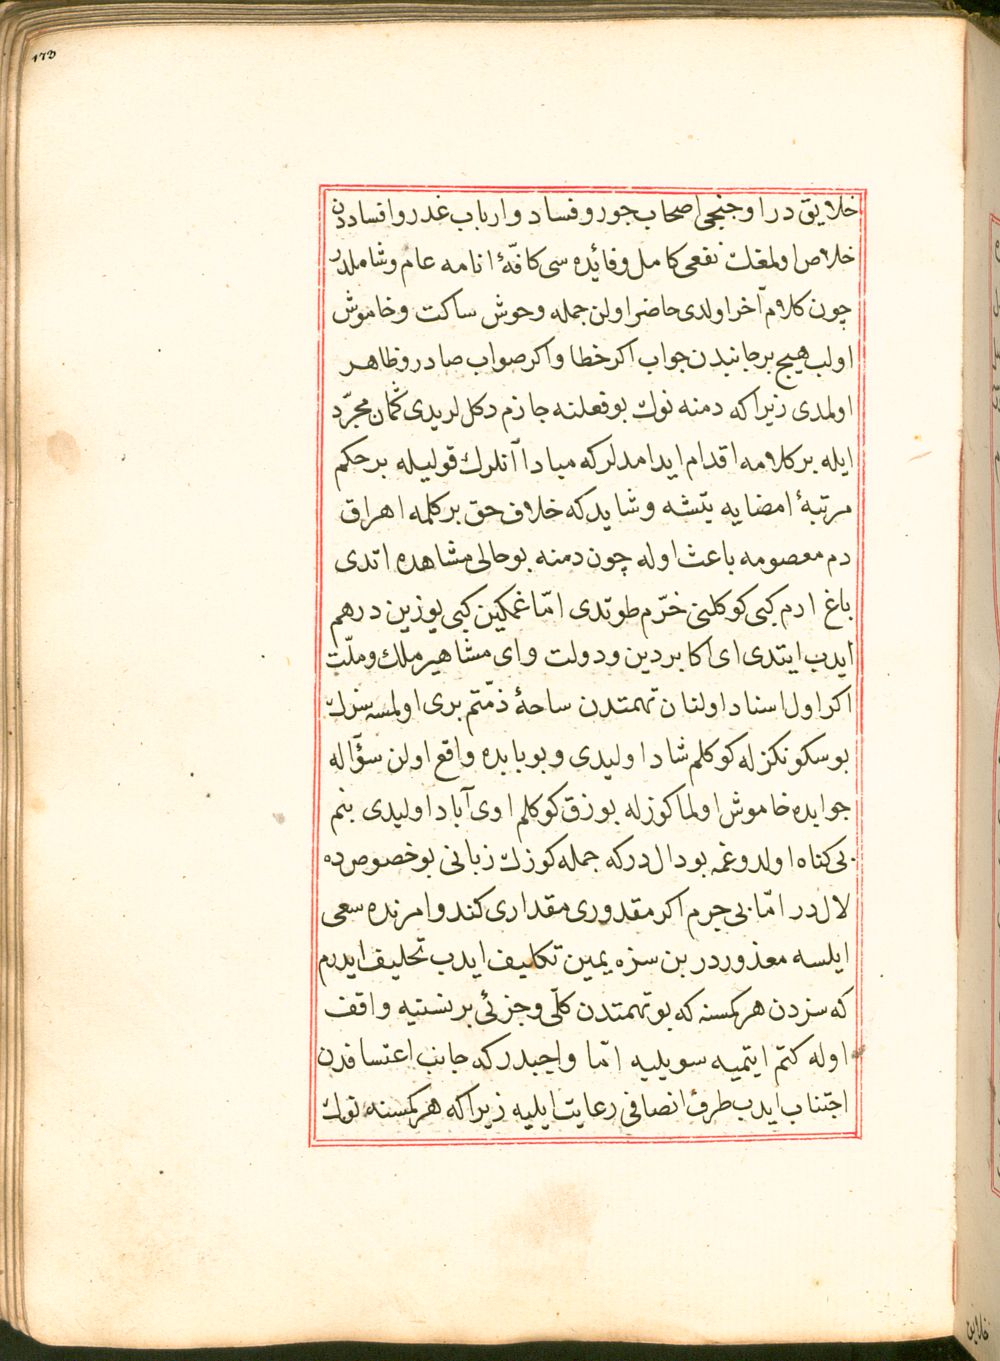 ١٧٥
خلايق در اوچنجى اصحاب جور و فساد و ارباب غدر و افساددن
خلاص اولمغك نفعى كامل و فائده سى كافّۀ انامه عام و شاملدر
چون كلام آخر اولدى حاضر اولن جمله وحوش ساكت و خاموش
اولب هيچ بر جانبدن جواب اكر خطا و اكر صواب صادر و ظاهر
اولمدى زيرا كه دمنه نوك بو فعلنه جازم دكللريدى كمان مجرّد
ايله بر كلامه اقدام ايدامدلر كه مبادا آنلرك قوليله بر حكم
مرتبۀ امضايه يتشه و شايد كه خلاف حق بر كلمه اهراق
دم معصومه باعث اوله چون دمنه بو حالى مشاهده اتدى
باغ ارم كبى كوكلنى خرّم طوتدى امّا غمكين كبى يوزين درهم
ايدب ايتدى اى اكابر دين و دولت و اى مشاهير ملك و ملّت
اكر اول اسناد اولنان تهمتدن ساحۀ ذمّتم برى اولمسه سزك
بو سكونكزله كوكلم شاد اوليدى و بو بابده واقع اولن سؤاله
جوابده خاموش اولماكوزله بوزق كوكلم اوى آباد اوليدى بنم
بى كناه اولدوغمه بو دالدر كه جمله كوزك زبانى بو خصوصده
لالدر امّا بى جرم اكر مقدورى مقدارى كندو امرنده سعى
ايلسه معذوردر بن سزه يمين تكليف ايدب تحليف ايدرم
كه سزدن هر كمسنه كه بو تهمتدن كلّى و جزئى بر نسنيه واقف
اوله كتم ايتميه سويليه امّا واجبدر كه جانب اعتسافدن
اجتناب ايدب طرف انصافى رعايت ايليه زيرا كه هر كمسنه نوك